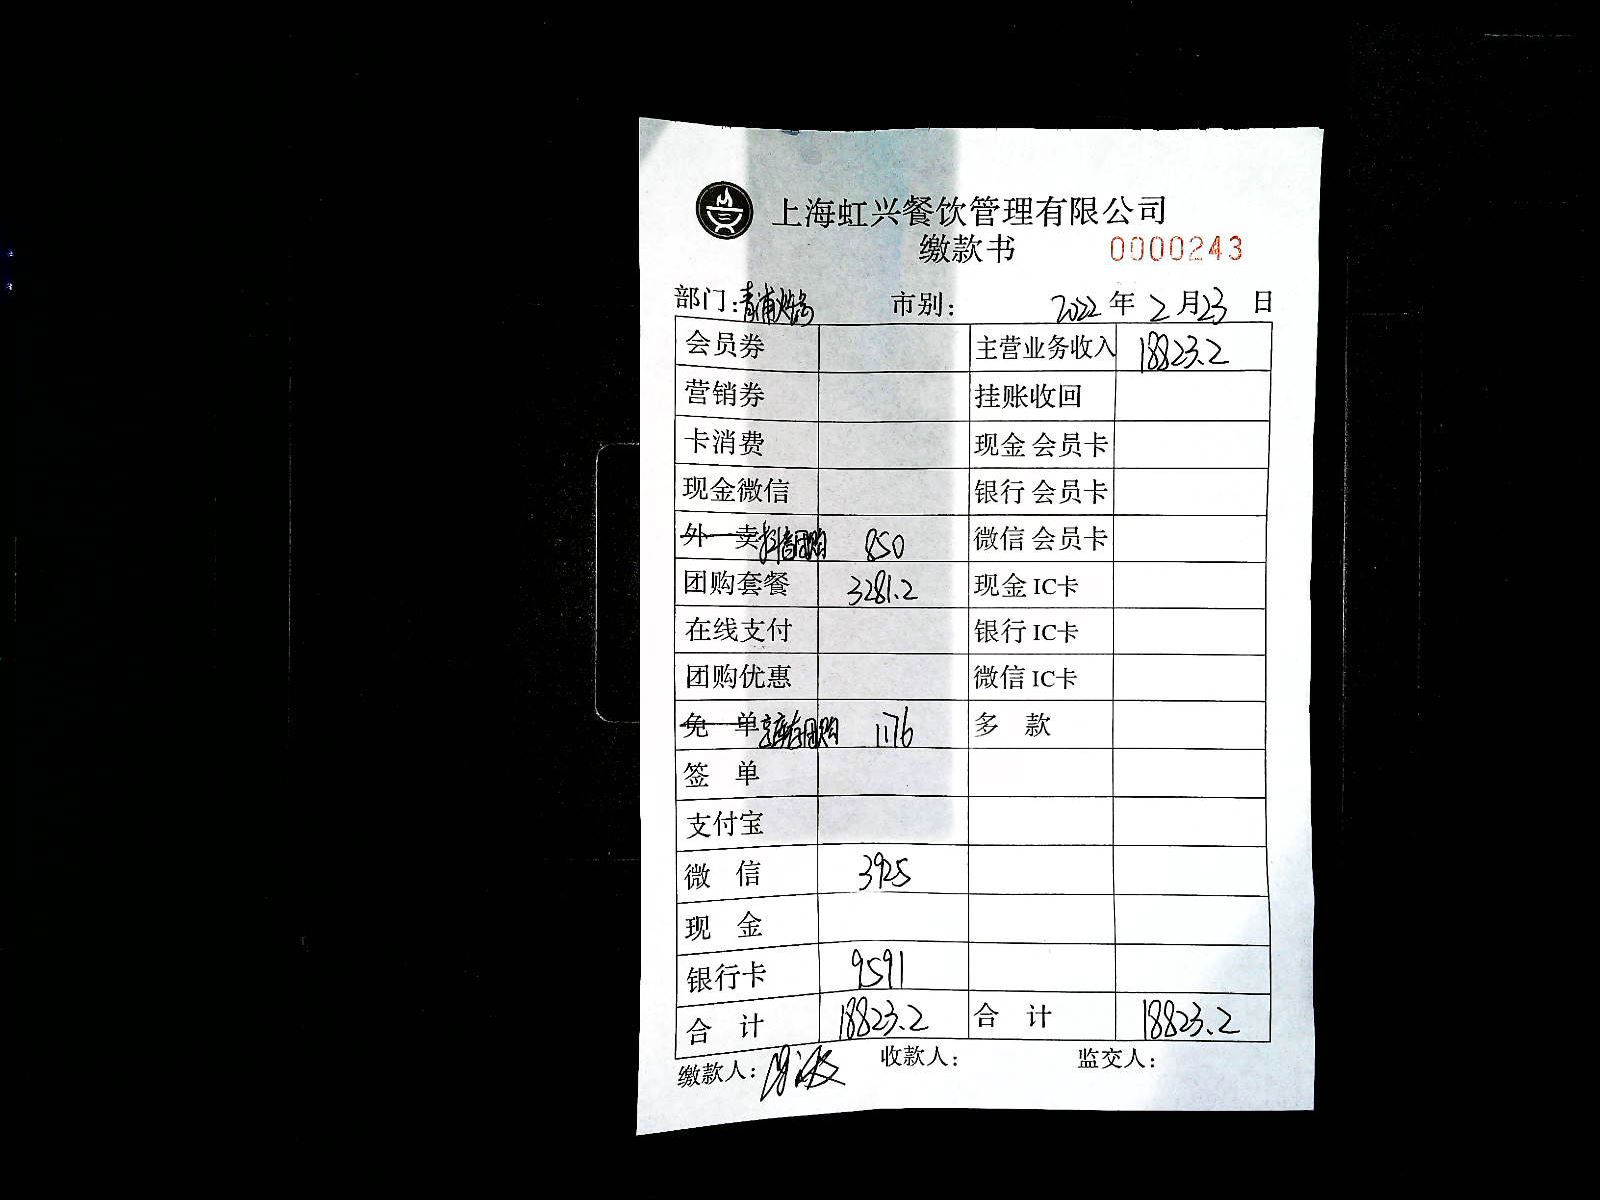 上海虹兴餐饮管理有限公司
缴款书 0000243
部门:青浦 市别: 2022 年 2 月 23 日
会员券 主营业务收入 18823.2
营销券 挂账收回
卡消费 现金 会员卡
现金微信 银行 会员卡
外 卖 抖音团购 850 微信 会员卡
团购套餐 3281.2 现金 IC卡
在线支付 银行 IC卡
团购优惠 微信 IC卡
免 单 库存团购 1176 多 款
签 单
支付宝
微 信 3925
现 金
银行卡 9591
合 计 18823.2 合 计 18823.2
缴款人: 收款人: 监交人: